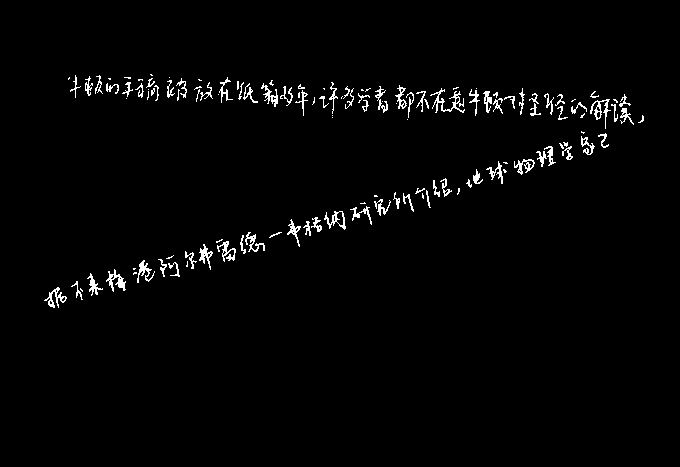 牛顿的手稿被放在纸箱多年,许多学者都不在意牛顿对圣经的解读,
据不来梅港阿尔弗雷德一韦格纳研究所介绍,地球物理学家已